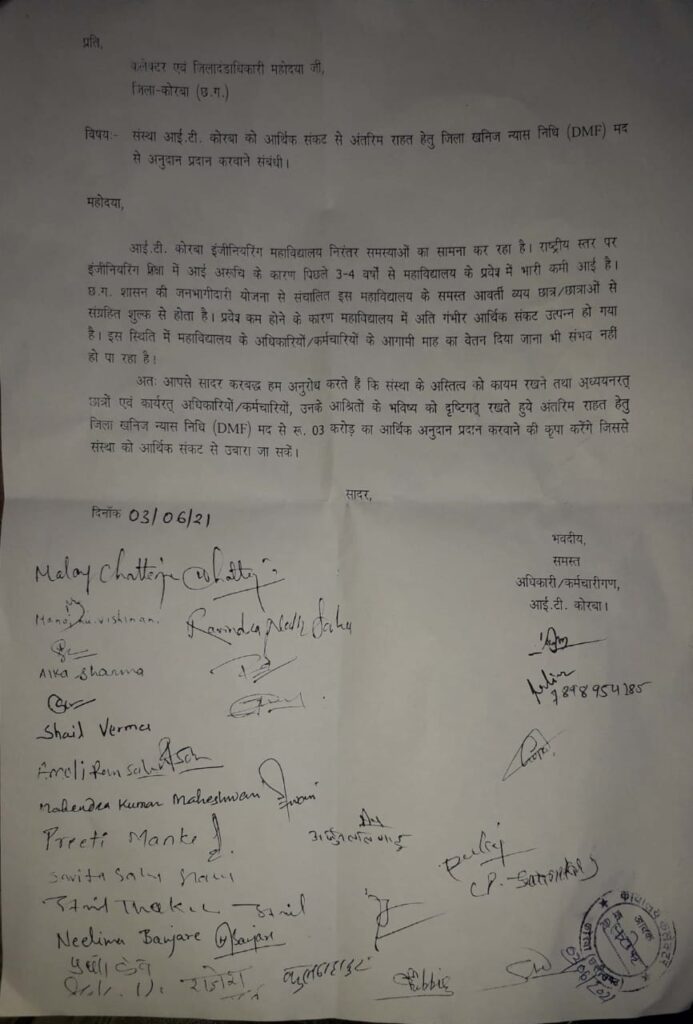 प्रति,
कलेक्टर एवं जिलादंडाधिकारी महोदया जी,
जिला-कोरबा (छ.ग.)
विषयः- संस्था आई.टी. कोरबा को आर्थिक संकट से अंतरिम राहत हेतु जिला खनिज न्यास निधि (DMF) मद
से अनुदान प्रदान करवाने संबंधी।
महोदया,
आई.टी. कोरबा इंजीनियरिंग महाविद्यालय निरंतर समस्याओं का सामना कर रहा है। राष्ट्रीय स्तर पर
इंजीनियरिंग शिक्षा में आई अरूचि के कारण पिछले 3-4 वर्षो से महाविद्यालय के प्रवेश में भारी कमी आई है।
छ.ग. शासन की जनभागीदारी योजना से संचालित इस महाविद्यालय के समस्त आवर्ती व्यय छात्र/छात्राओं से
संग्रहित शुल्क से होता है। प्रवेश कम होने के कारण महाविद्यालय में अति गंभीर आर्थिक संकट उत्पन्न हो गया
है। इस स्थिति में महाविद्यालय के अधिकारियों/कर्मचारियों के आगामी माह का वेतन दिया जाना भी संभव नहीं
हो पा रहा है!
अतः आपसे सादर करबद्ध हम अनुरोध करते हैं कि संस्था के अस्तित्व को कायम रखने तथा अध्ययनरत्
छात्रों एवं कार्यरत् अधिकारियों/कर्मचारियों, उनके आश्रितों के भविष्य को दृष्टिगत् रखते हुये अंतरिम राहत हेतु
जिला खनिज न्यास निधि (DMF) मद से रू. 03 करोड़ का आर्थिक अनुदान प्रदान करवाने की कृपा करेंगे जिससे
संस्था को आर्थिक संकट से उबारा जा सकें।
सादर,
दिनाँक 03/06/21
भवदीय,
समस्त
अधिकारी/कर्मचारीगण,
आई.टी. कोरबा।
Malay Chatterjee
Ravindra Nath Sahu
Alka Sharma
Shail Verma
Mahendra Kumar Maheshwari
Preeti Manke
Savita Sahu
Neelima Banjare Banjare
राजेश